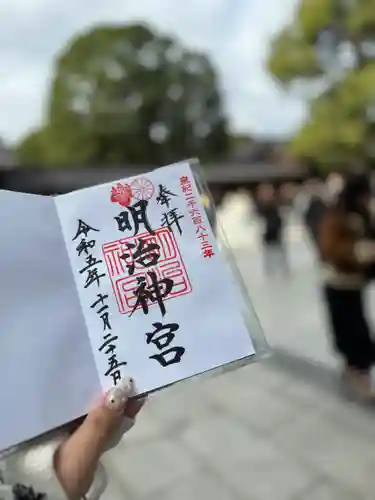 皇紀二千六百八十三年
奉拝
明治神宮
令和五年十一月二十五日